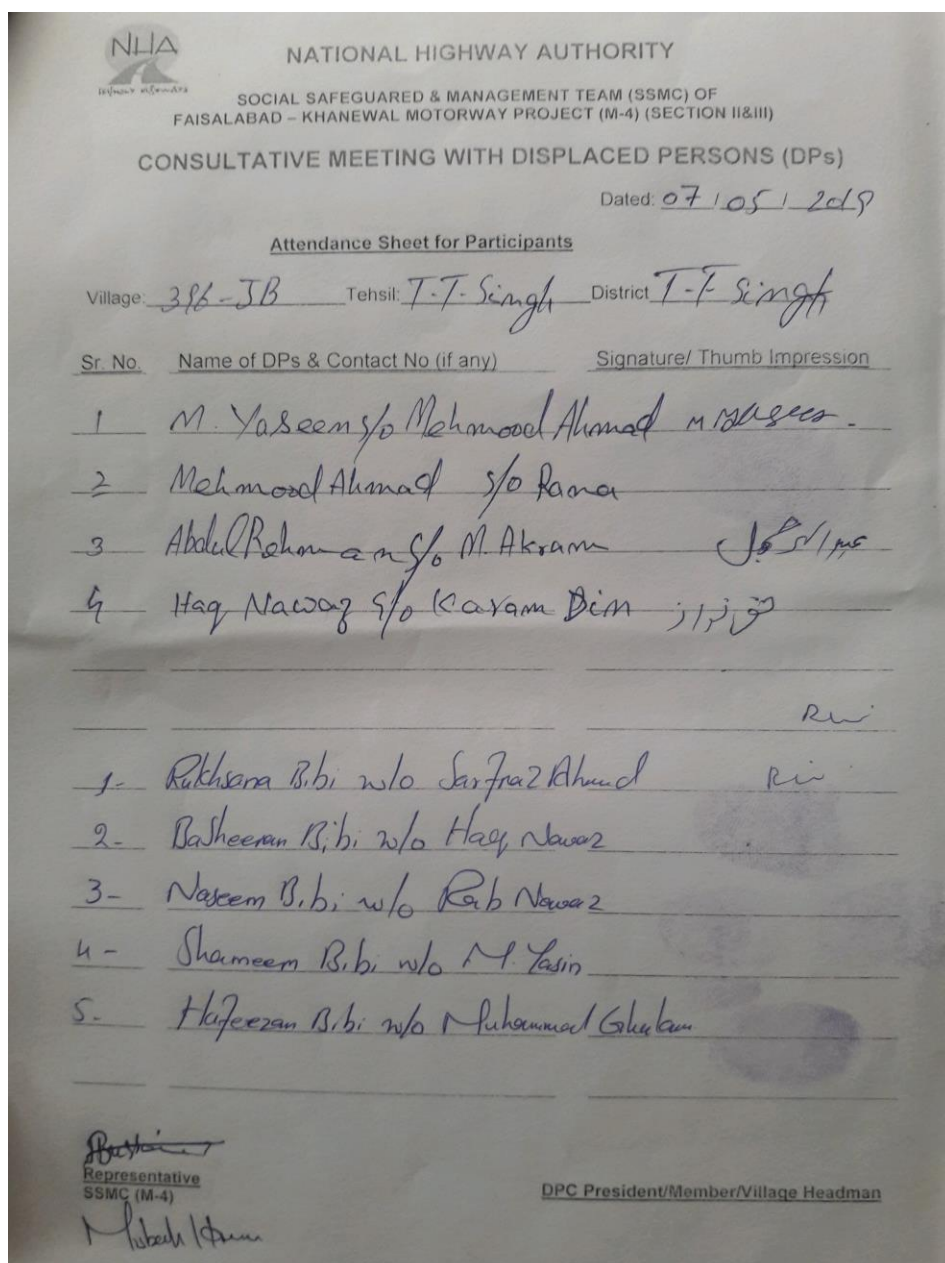 NHA
NATIONAL HIGHWAY AUTHORITY
SOCIAL SAFEGUARED & MANAGEMENT TEAM (SSMC) OF
FAISALABAD – KHANEWAL MOTORWAY PROJECT (M-4) (SECTION II&III)
CONSULTATIVE MEETING WITH DISPLACED PERSONS (DPs)
Dated: 07/05/2019
Attendance Sheet for Participants
Village: 396-JB Tehsil: T-T-Singh District T-T-Singh
Sr. No. Name of DPs & Contact No (if any) Signature/ Thumb Impression
1 M. Yaseen s/o Mehmood Ahmad
2 Mehmood Ahmad s/o Rana
3 Abdul Rehman s/o M. Akram
4 Haq Nawaz s/o Karam Din حق نواز
1- Rukhsana Bibi w/o Sarfraz Ahmad
2- Basheeran Bibi w/o Haq Nawaz
3- Naseem Bibi w/o Rab Nawaz
4- Shameem Bibi w/o M. Yasin
5- Hafeezan Bibi w/o Muhammad Ghulam
Representative
SSMC (M-4)
DPC President/Member/Village Headman